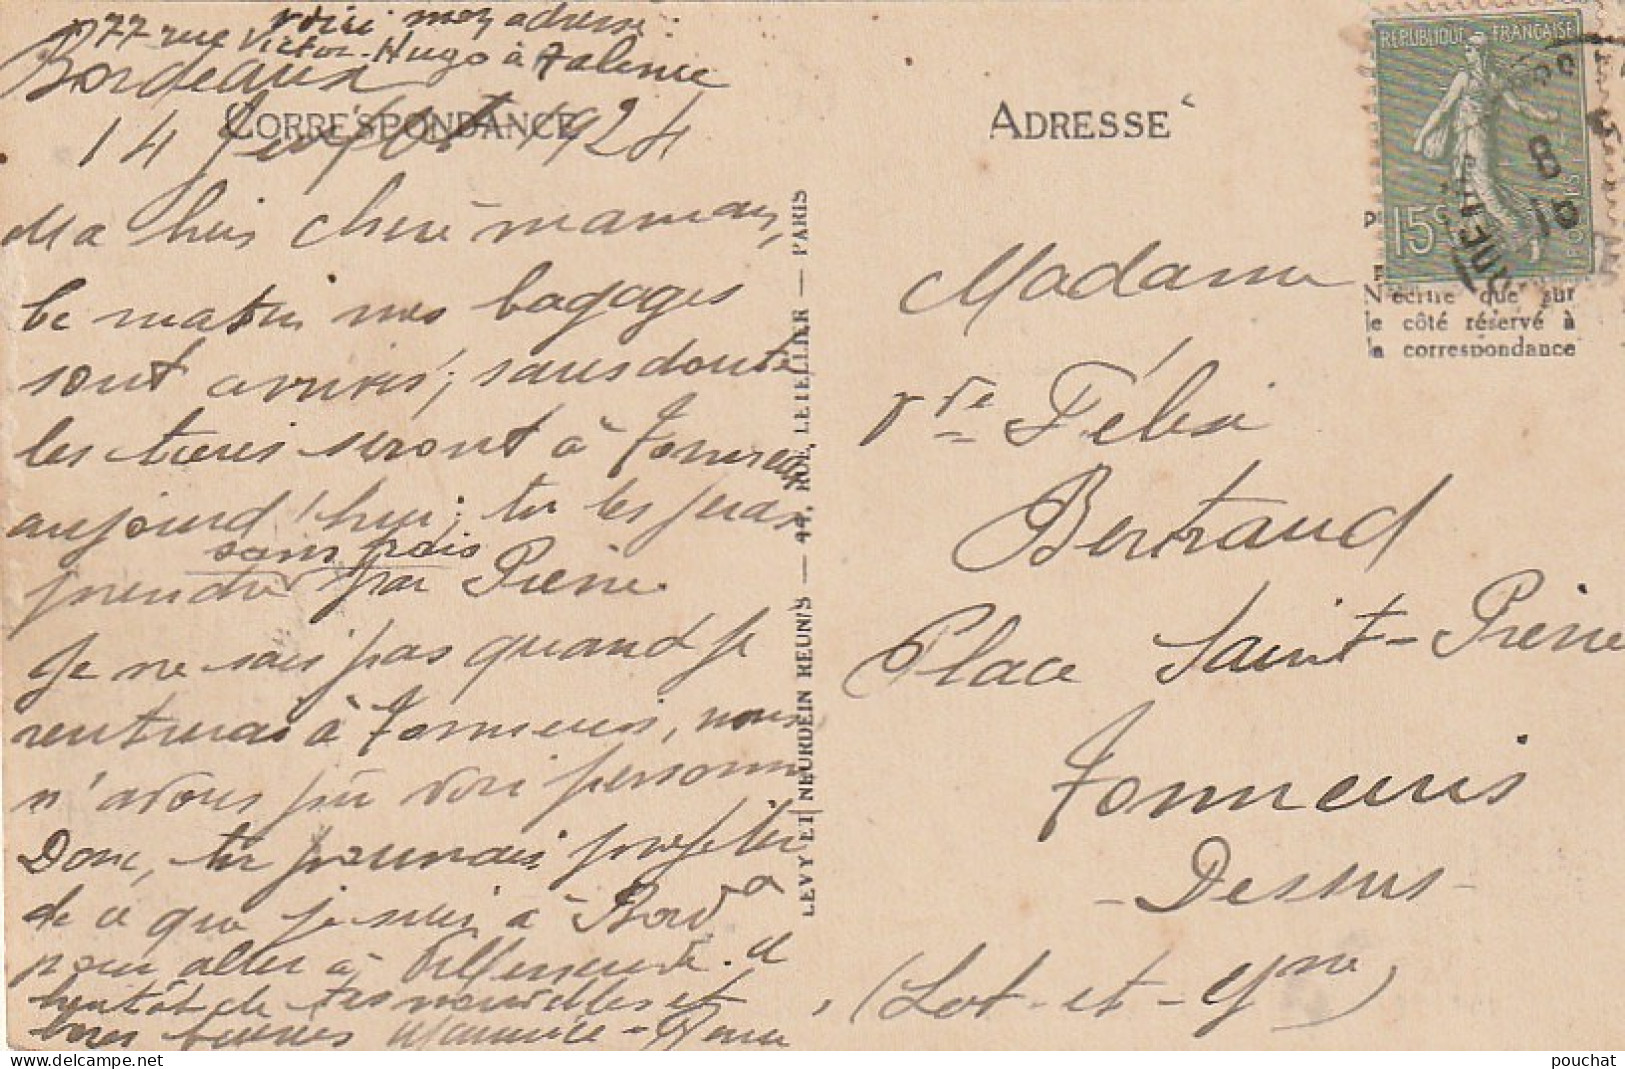 voici mon adresse:
77 rue Victor-Hugo à Talence
Bordeaux
CORRESPONDANCE
14 1924
Ma bien chère maman,
Ce matin mes bagages
sont arrivés; sans doute
les tiens seront à Tonneins
aujourd'hui; tu les feras
sans frais
prendre par Pierre.
Je ne sais pas quand je
rentrerai à Tonneins, nous
n'avons pu voir personne
Donc, tu pourrais profiter
de ce que je suis à Bordx
pour aller à Villeneuve. à
bientôt de tes nouvelles et
bons
LEVY ET NEURDEIN REUNIS — 44, RUE LETELLIER — PARIS
ADRESSE
REPUBLIQUE FRANÇAISE
15c
POSTES
8
N'écrire que sur
le côté réservé à
la correspondance
Madame
Vve Félix
Bertraud
Place Saint-Pierre
Tonneins
- Dessus -
(Lot-et-Gne)
pouchat